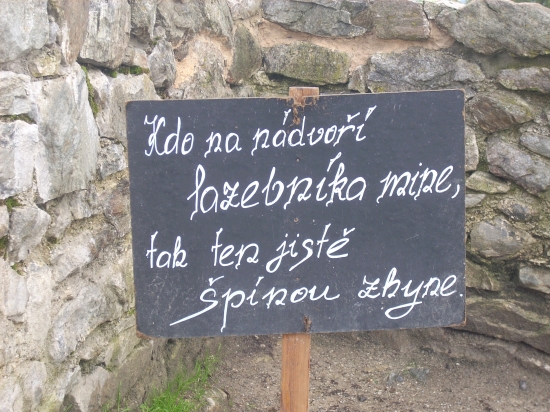 Kdo na nádvoří
lazebníka mine,
tak ten jistě
špínou zhyne.